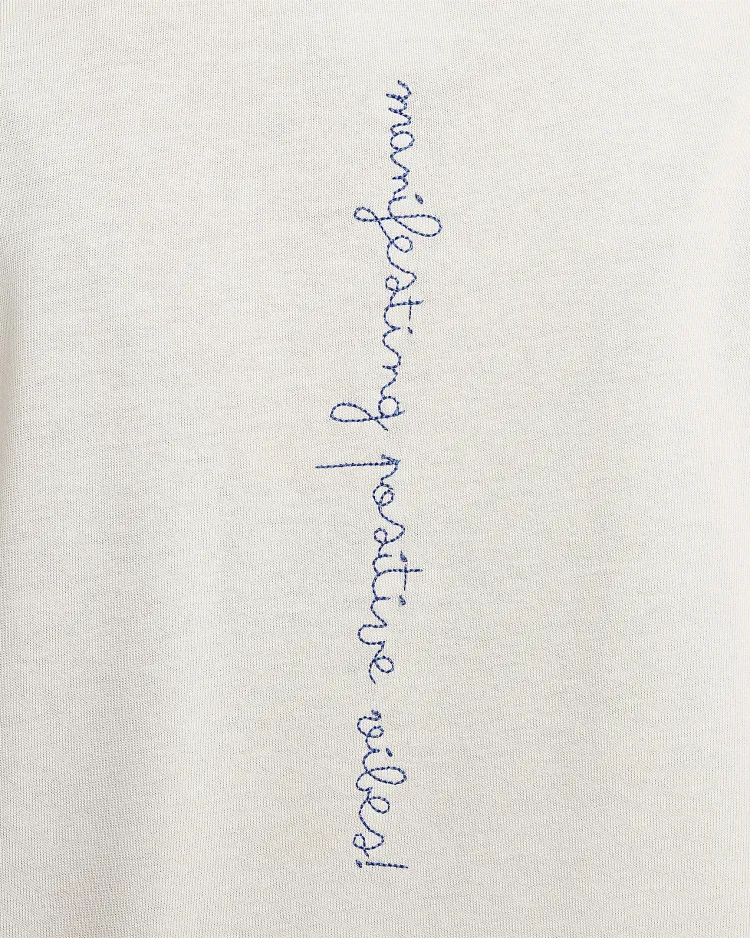 manifesting positive vibes!